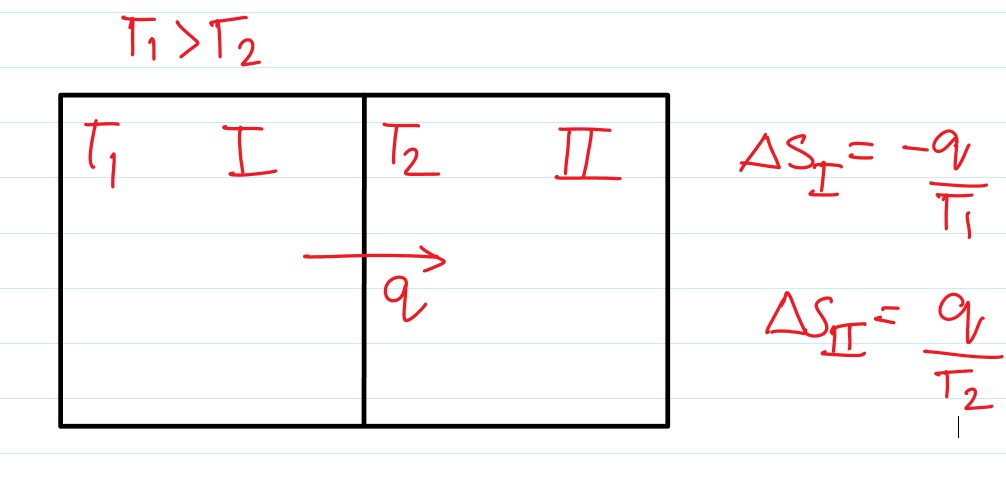 T₁ > T₂
T₁ I T₂ II
q
ΔS_I = -q/T₁
ΔS_II = q/T₂